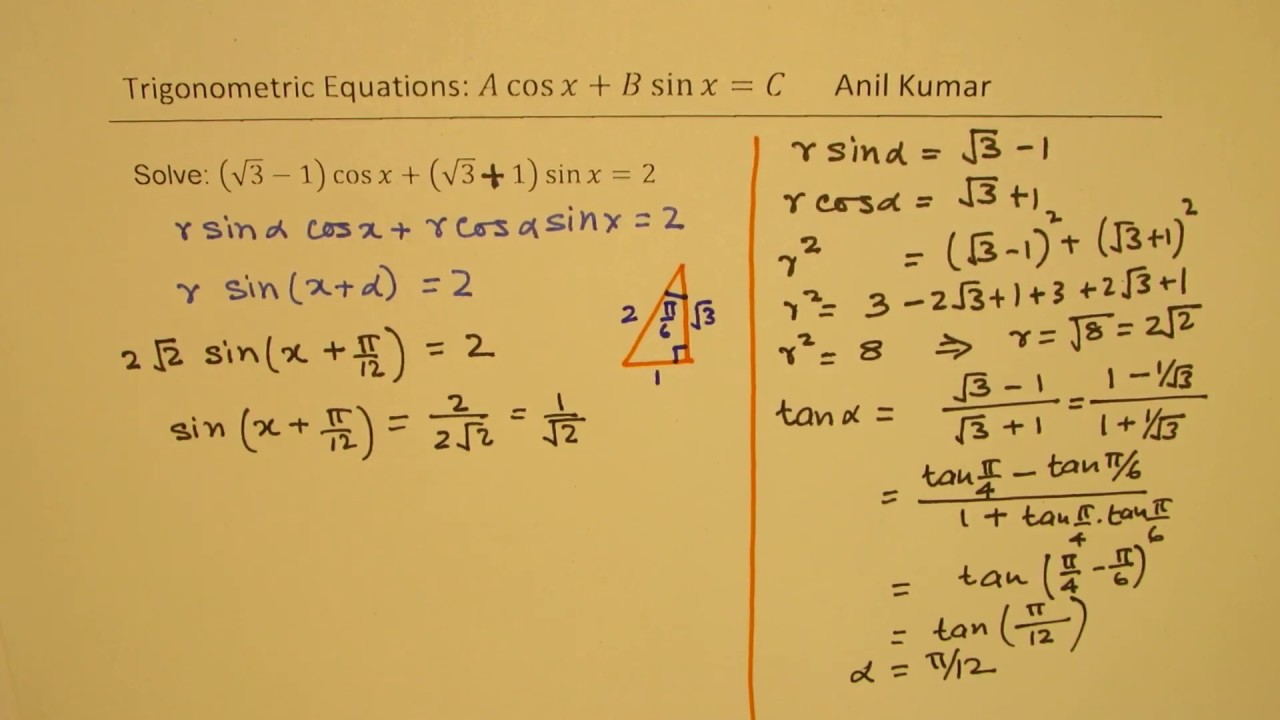 Trigonometric Equations: A cos x + B sin x = C Anil Kumar
Solve: (√3 − 1) cos x + (√3 + 1) sin x = 2
r sinα cosx + r cosα sinx = 2
r sin(x+α) = 2
2√2 sin(x + π/12) = 2
sin (x + π/12) = 2/2√2 = 1/√2
2 π/6 √3
1
r sinα = √3 − 1
r cosα = √3 + 1
r² = (√3−1)² + (√3+1)²
r² = 3 − 2√3 + 1 + 3 + 2√3 + 1
r² = 8 ⇒ r = √8 = 2√2
tanα = (√3 − 1)/(√3 + 1) = (1 − 1/√3)/(1 + 1/√3)
= (tan π/4 − tan π/6)/(1 + tan π/4 . tan π/6)
= tan (π/4 − π/6)
= tan (π/12)
α = π/12